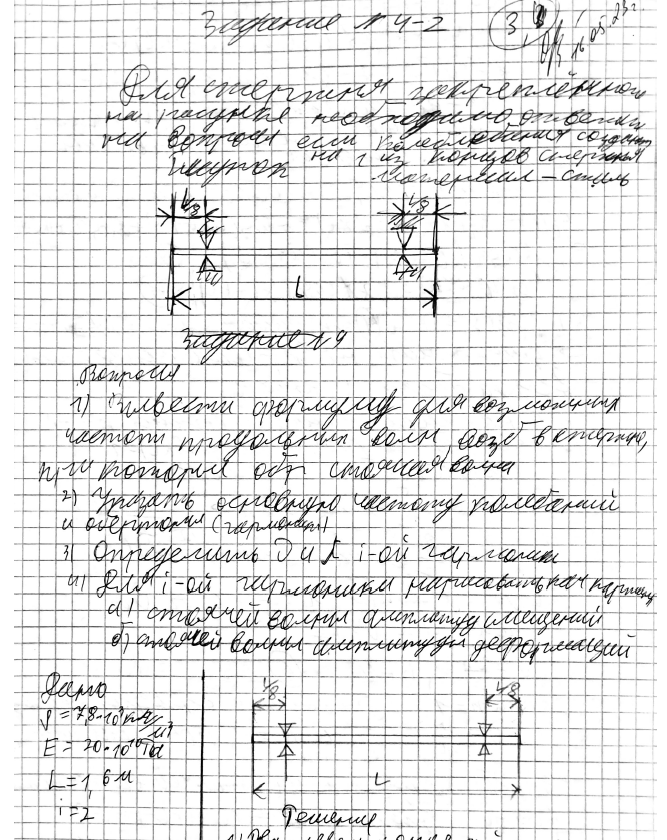 Задание №4-2
3
16.05.23г.
Для стержня закреплённого
на рисунке необходимо ответить
на вопросы если колебания создают
на 1 из концов стержня
Материал – сталь
L/8 L/8
L
Задание №4
Вопросы
1) Вывести формулу для возможных
частот продольных волн возб в стержне,
при которых обр стоячая волна
2) Указать основную частоту колебаний
и обертоны (гармоники)
3) Определить ϑ и λ i-ой гармоники
4) Для i-ой гармоники нарисовать кач картину
а) стоячей волны амплитуд смещений
б) стоячей волны амплитуды деформаций
Дано
ρ = 7,8·10³ кг/м³
E = 20·10¹⁰ Па
L = 1,6 м
i = 2
L/8 L/8
L
Решение